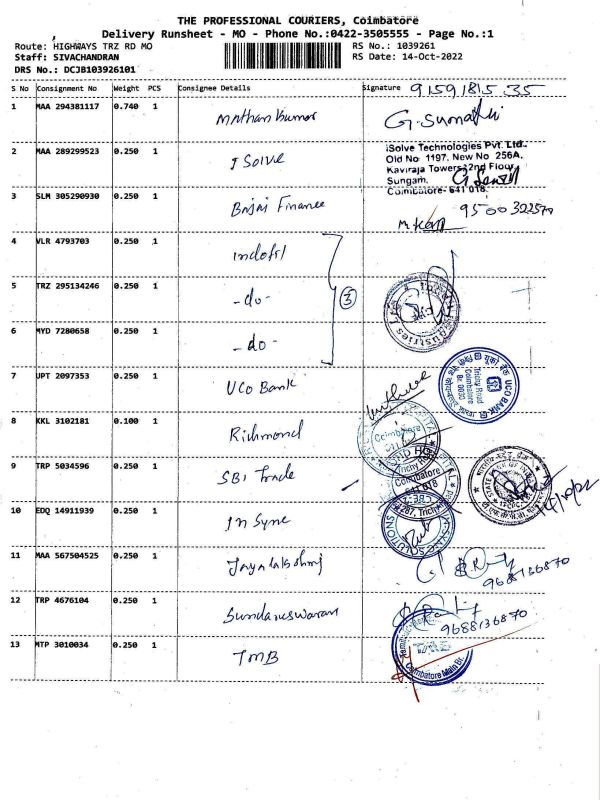 THE PROFESSIONAL COURIERS, Coimbatore
Delivery Runsheet - MO - Phone No.:0422-3505555 - Page No.:1
Route: HIGHWAYS TRZ RD MO RS No.: 1039261
Staff: SIVACHANDRAN RS Date: 14-Oct-2022
DRS No.: DCJB103926101
S No Consignment No Weight PCS Consignee Details Signature 9159181535
1 MAA 294381117 0.740 1 Mathan Kumar G. Sumathi
2 MAA 289299523 0.250 1 I Solve
iSolve Technologies Pvt. Ltd.
Old No 1197, New No 256A,
Kaviraja Towers, 2nd Floor,
Sungam,
Coimbatore- 641 018.
3 SLM 305290930 0.250 1 Bajaj Finance 9500322570
4 VLR 4793703 0.250 1 Indofil
5 TRZ 295134246 0.250 1 -do- 3
6 MYD 7280658 0.250 1 -do-
7 JPT 2097353 0.250 1 UCO Bank
UCO BANK
Trichy Road
Coimbatore
8 KKL 3102181 0.100 1 Richmond
Coimbatore
9 TRP 5034596 0.250 1 SBI Trade
Trichy Road
Coimbatore
641 018
10 EDQ 14911939 0.250 1 In Sync
11 MAA 567504525 0.250 1 Jayalakshmi
9688136870
12 TRP 4676104 0.250 1 Sundareswaran
9688136870
13 MTP 3010034 0.250 1 TMB
Coimbatore Main Br.